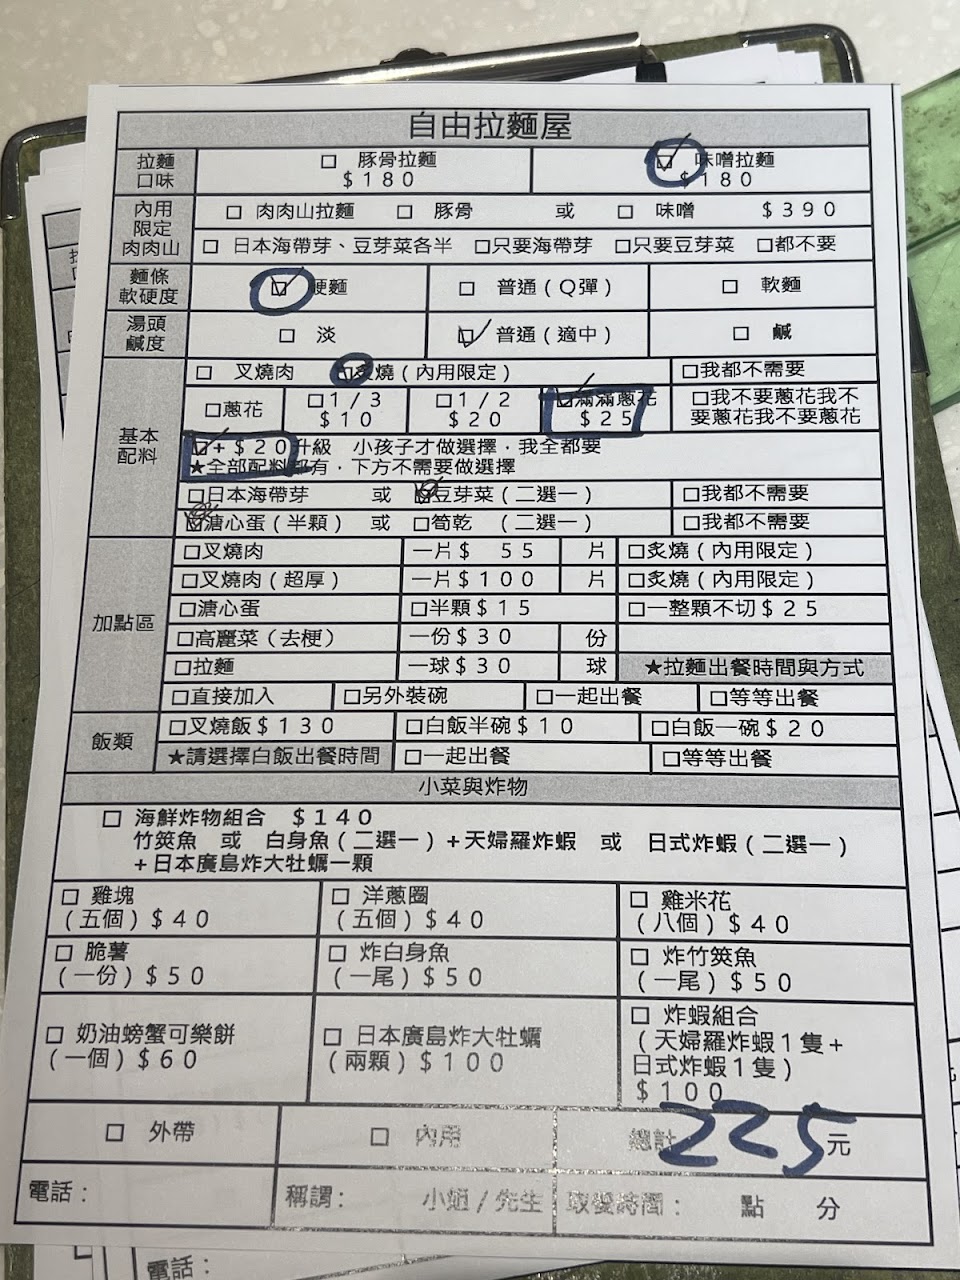 自由拉麵屋
拉麵口味 □ 豚骨拉麵 $180 ☑ 味噌拉麵 $180
內用限定肉肉山 □ 肉肉山拉麵 □ 豚骨 或 □ 味噌 $390
□ 日本海帶芽、豆芽菜各半 □只要海帶芽 □只要豆芽菜 □都不要
麵條軟硬度 ☑ 硬麵 □ 普通(Q彈) □ 軟麵
湯頭鹹度 □ 淡 ☑ 普通(適中) □ 鹹
基本配料 □ 叉燒肉 ☑炙燒(內用限定) □我都不需要
□蔥花 □1/3 $10 □1/2 $20 ☑滿滿蔥花 $25 □我不要蔥花我不要蔥花我不要蔥花
☑+$20升級 小孩子才做選擇，我全都要
★全部配料都有，下方不需要做選擇
□日本海帶芽 或 ☑豆芽菜(二選一) □我都不需要
☑溏心蛋(半顆) 或 □筍乾 (二選一) □我都不需要
加點區 □叉燒肉 一片$ 55 片 □炙燒(內用限定)
□叉燒肉(超厚) 一片$100 片 □炙燒(內用限定)
□溏心蛋 □半顆$15 □一整顆不切$25
□高麗菜(去梗) 一份$30 份
□拉麵 一球$30 球 ★拉麵出餐時間與方式
□直接加入 □另外裝碗 □一起出餐 □等等出餐
飯類 □叉燒飯$130 □白飯半碗$10 □白飯一碗$20
★請選擇白飯出餐時間 □一起出餐 □等等出餐
小菜與炸物
□ 海鮮炸物組合 $140
竹筴魚 或 白身魚(二選一)+天婦羅炸蝦 或 日式炸蝦(二選一)
+日本廣島炸大牡蠣一顆
□ 雞塊 (五個)$40 □ 洋蔥圈 (五個)$40 □ 雞米花 (八個)$40
□ 脆薯 (一份)$50 □ 炸白身魚 (一尾)$50 □ 炸竹筴魚 (一尾)$50
□ 奶油螃蟹可樂餅 (一個)$60 □ 日本廣島炸大牡蠣 (兩顆)$100 □ 炸蝦組合 (天婦羅炸蝦1隻+日式炸蝦1隻) $100
□ 外帶 □ 內用 總計 225元
電話： 稱謂： 小姐/先生 取餐時間： 點 分
電話：